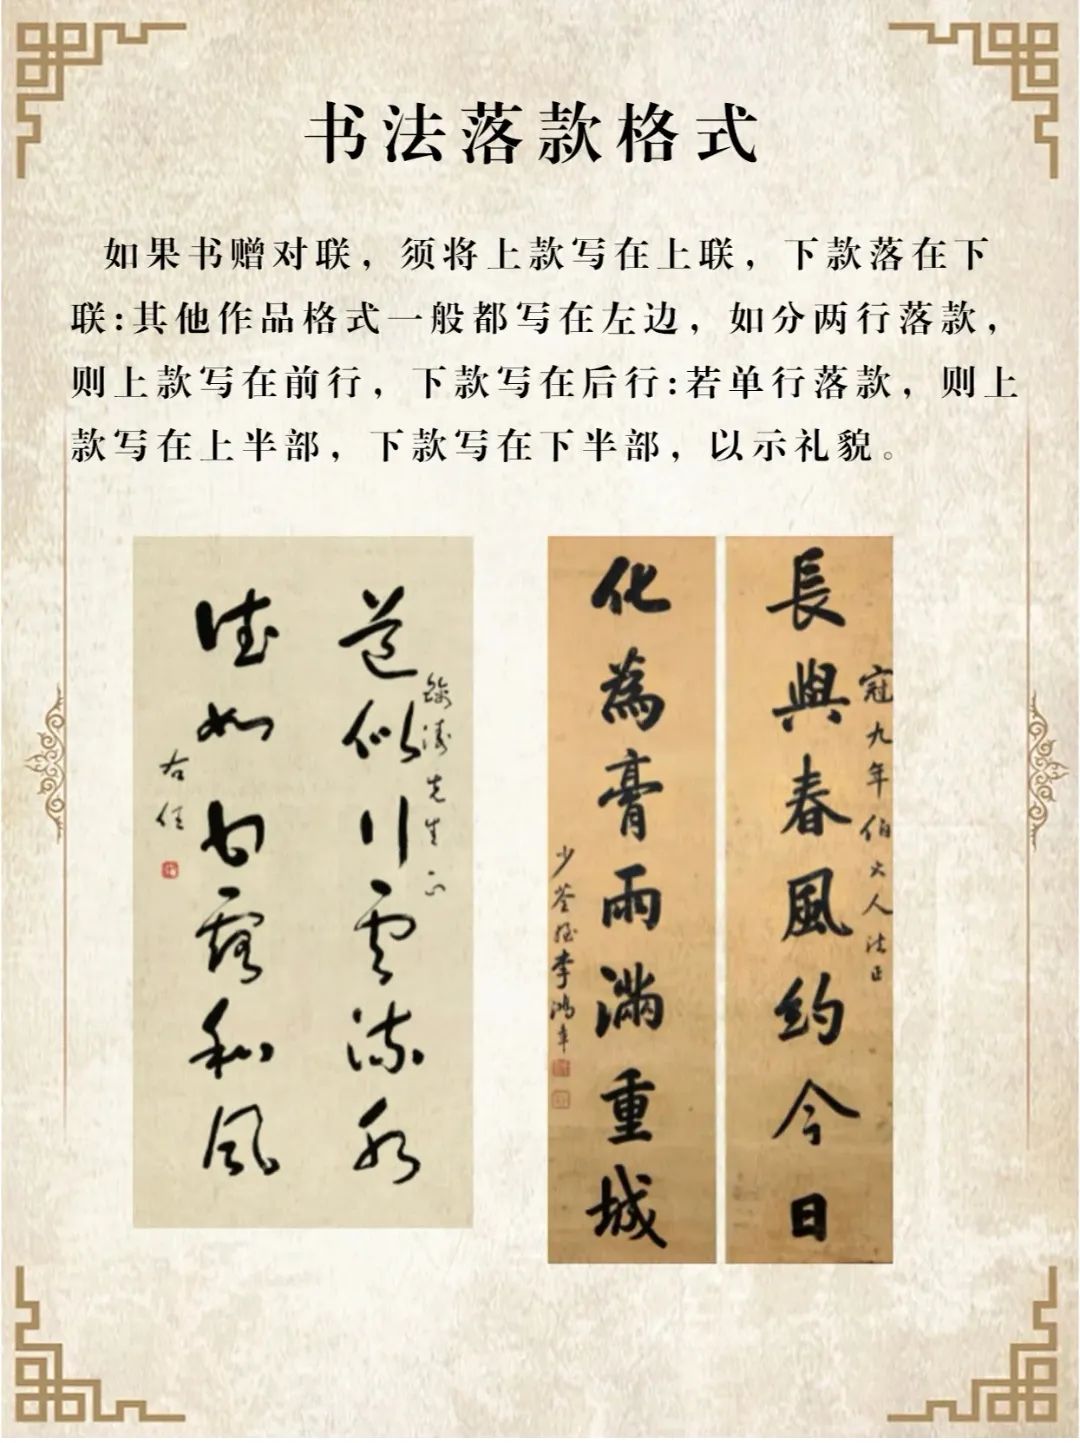 书法落款格式
如果书赠对联，须将上款写在上联，下款落在下
联:其他作品格式一般都写在左边，如分两行落款，
则上款写在前行，下款写在后行:若单行落款，则上
款写在上半部，下款写在下半部，以示礼貌。
道似行云流水
先生正
德如甘露和风
右任
長與春風約今日
冠九年伯大人法正
化為膏雨滿重城
少荃姪李鴻章